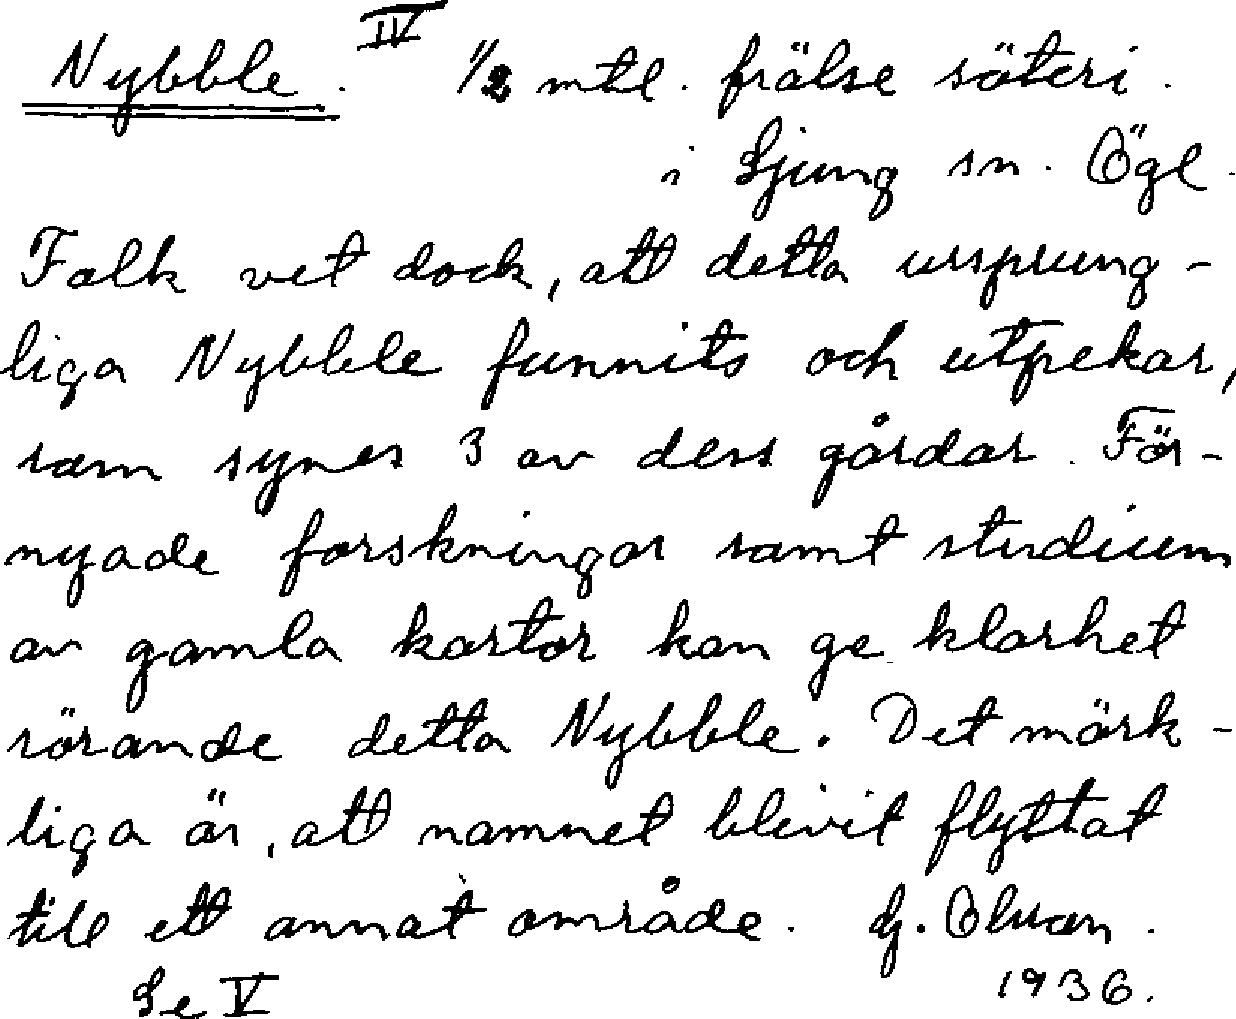 Nybble. IV 1/2 mtl. frälse säteri.
i Ljung sn. Ögl.
Folk vet dock, att detta ursprung-
liga Nybble funnits och utpekar,
som synes 3 av dess gårdar. För-
nyade forskningar samt studium
av gamla kartor kan ge klarhet
rörande detta Nybble. Det märk-
liga är, att namnet blivit flyttat
till ett annat område. Hj. Olsson.
Se V 1936.